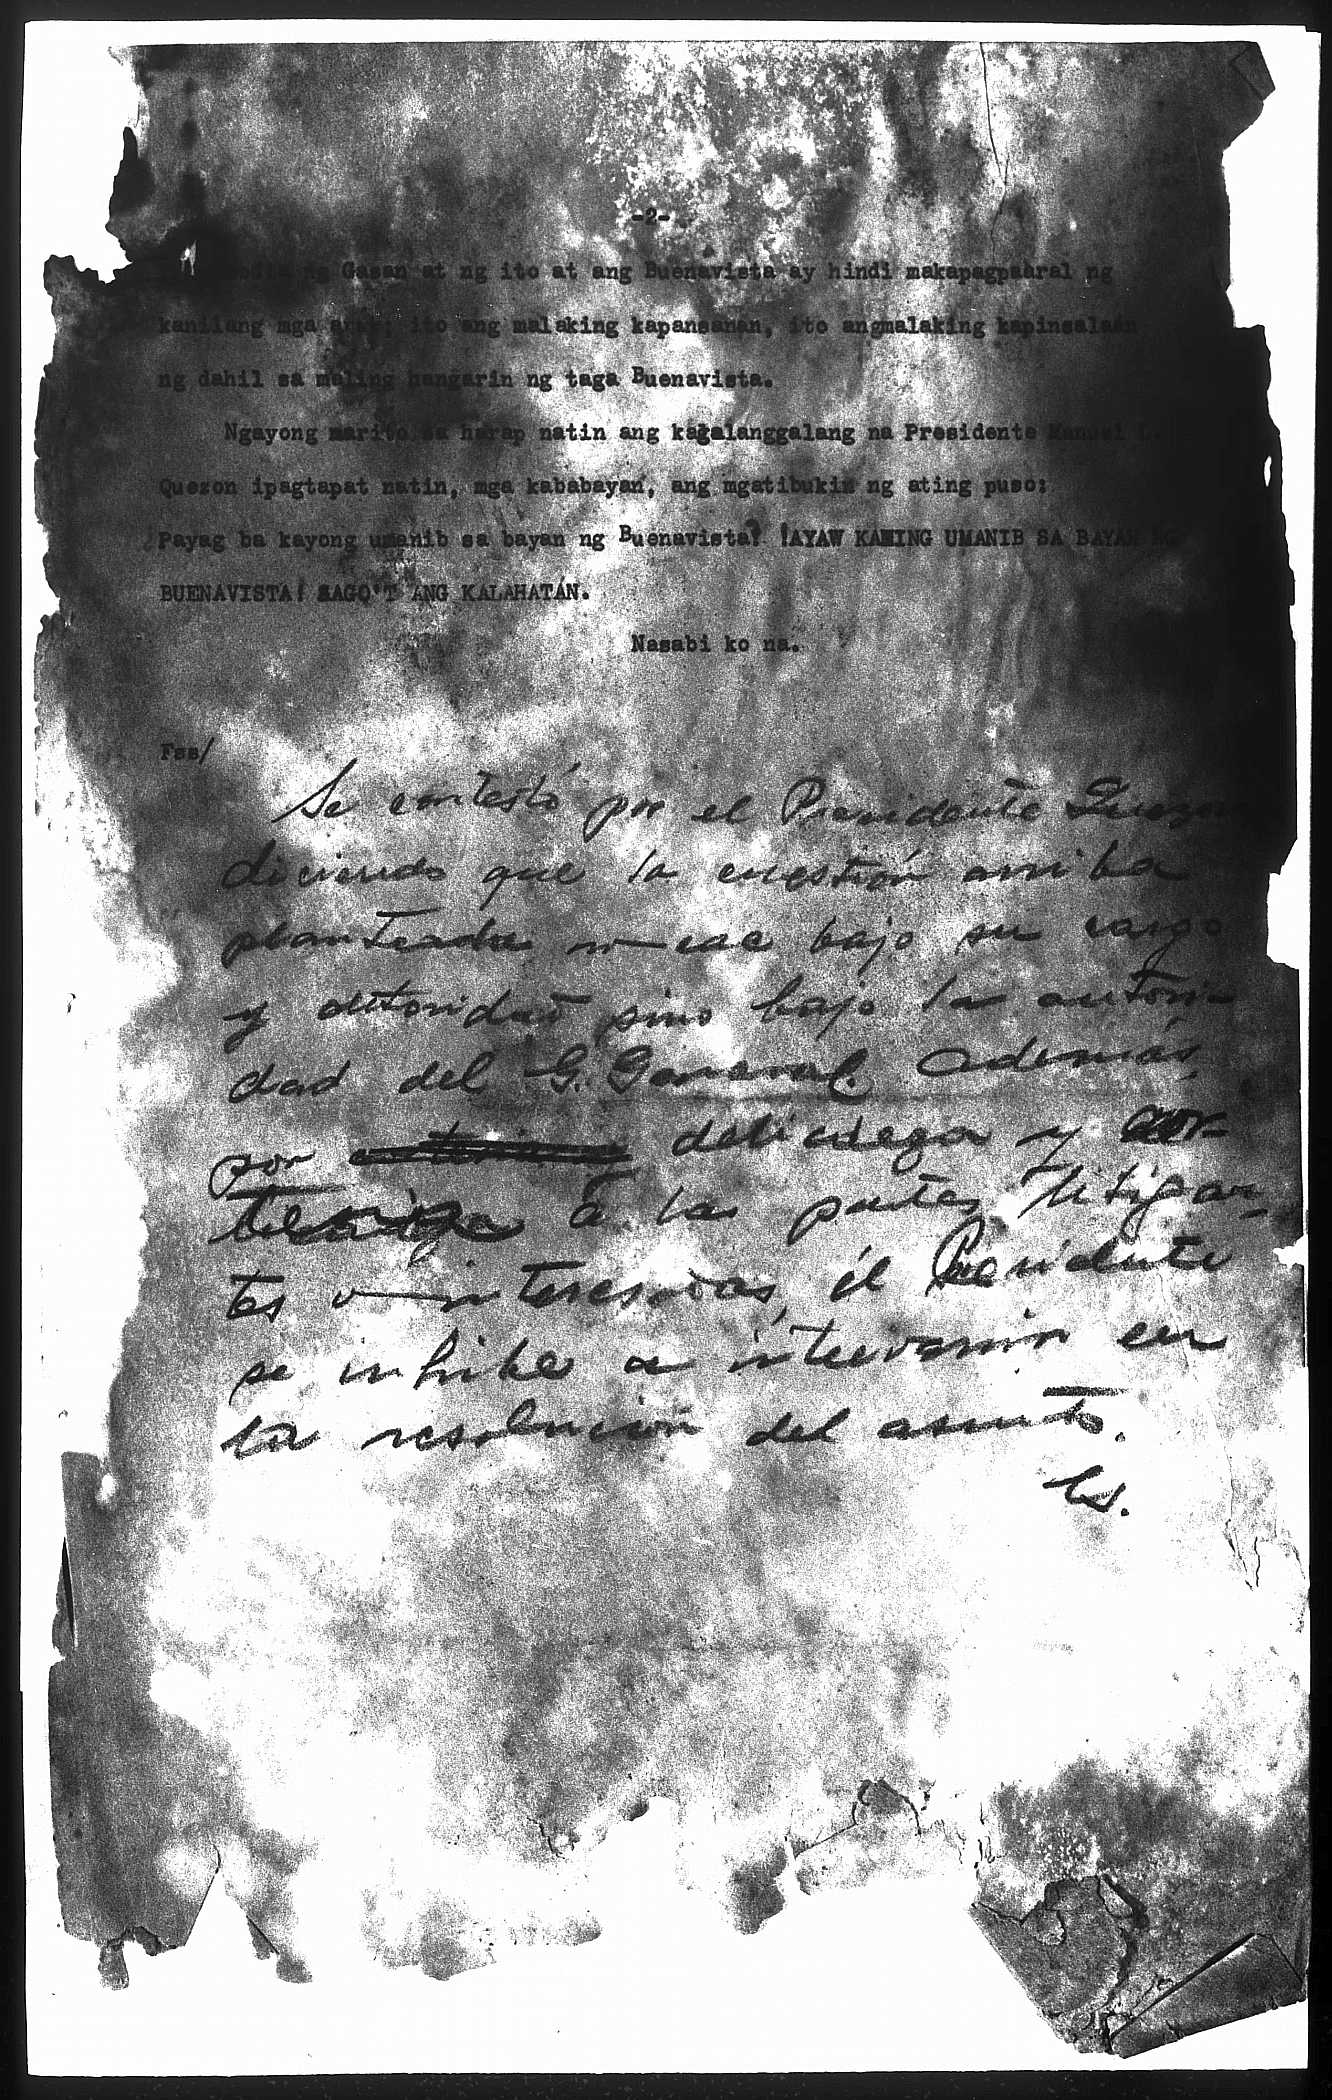 -2-
Gasan at ng ito at ang Buenavista ay hindi makapagpaaral ng
kanilang mga anak; ito ang malaking kapansanan, ito angmalaking kapinsalaan
ng dahil sa maling hangarin ng taga Buenavista.
Ngayong narito sa harap natin ang kagalanggalang na Presidente Manuel L.
Quezon ipagtapat natin, mga kababayan, ang mgatibukin ng ating puso:
Payag ba kayong umanib sa bayan ng Buenavista? !AYAW KAMING UMANIB SA BAYAN NG
BUENAVISTA! SAGO'T ANG KALAHATAN.
Nasabi ko na.
Fss/
Se contestó por el Presidente Quezon
diciendo que la cuestión arriba
planteada no cae bajo su cargo
y autoridad sino bajo la autori-
dad del G. General. Además,
por delicadeza y cor-
tesia á las partes litigan-
tes o interesadas, él Presidente
se inhibe a intervenir en
la resolución del asunto.